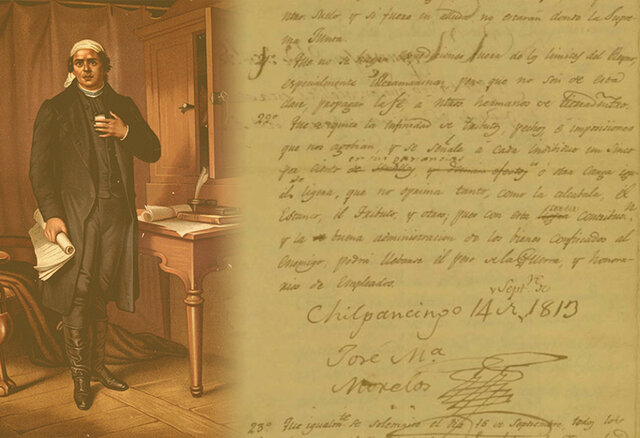 ntro. Suelo, y si fuere en aiuda no estaran donde la Supre
ma Junta.
Que no se hagan expediciones fuera de los limites del Reyno,
especialmente Ultramarinas, pero que no son de esta
clase propagar la fé á ntros hermanos de tierradentro.
22º Que se quite la infinidad de tributos, pechos, é imposiciones
que nos agobian, y se señale á cada individuo un cinco
en sus ganancias
por ciento de semillas, y demas efectos u otra carga igual
ligera, que no oprima tanto, como la alcabala, el
Estanco, el Tributo, y otros, pues con esta corta contribucn
y la buena administracion de los bienes confiscados al
Enemigo, podrá llebarse el peso de la Guerra, y honora-
rios de Empleados.
Septre de
Chilpancingo 14 de 1813
José Mª
Morelos
23º Que igualmte se solemnize el dia 16 de Septiembre, todos los